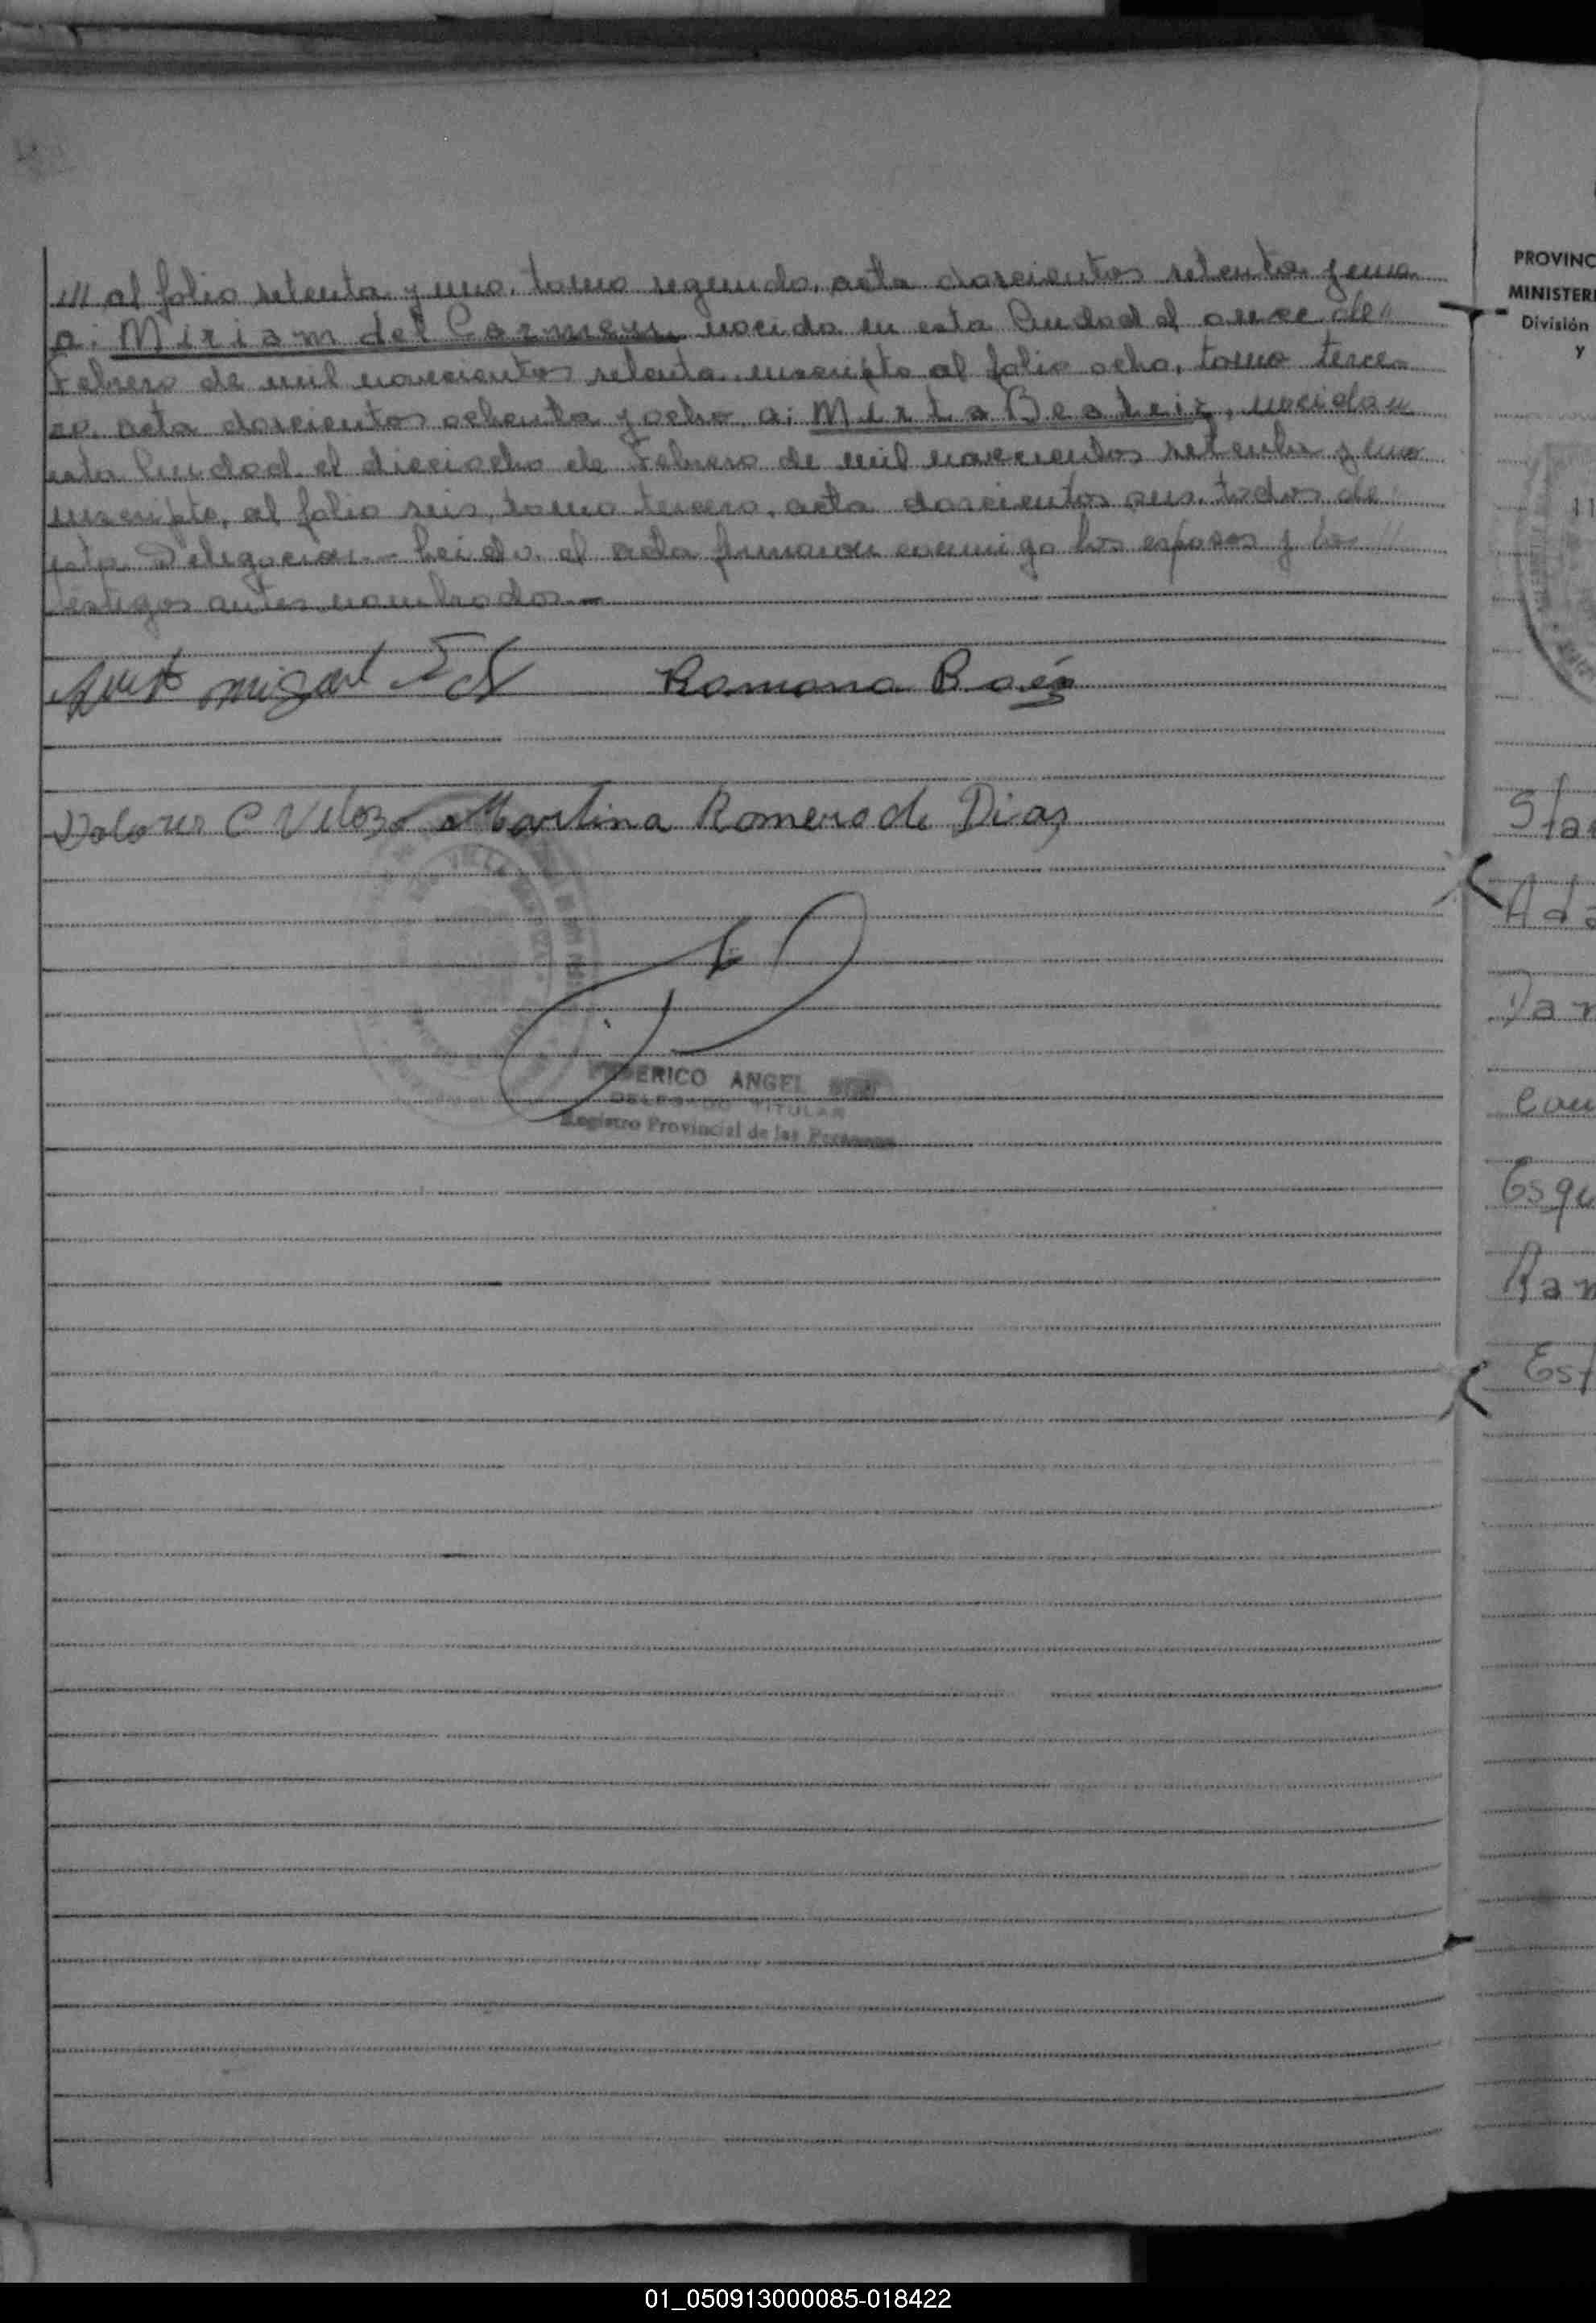 /// al folio setenta y uno, tomo segundo, acta doscientos setenta y uno
a: Miriam del Carmen nacida en esta Ciudad el once de //
Febrero de mil novecientos setenta, inscripto al folio ocho, tomo terce-
ro, acta doscientos ochenta y ocho, a: Mirta Beatriz, nacida en
esta Ciudad el dieciocho de Febrero de mil novecientos setenta y uno
inscripto, al folio seis, tomo tercero, acta doscientos seis, todos de
esta Delegacion.- Leida el acta firmaron conmigo los esposos y los //
testigos antes nombrados.-
Miguel
Ramona Baéz
Dolores C Velozo
Martina Romero de Diaz
FEDERICO ANGEL
DELEGADO TITULAR
Registro Provincial de las Personas
PROVINC
MINISTERI
División
y
11
Sta
Ada
Dan
Cau
Esqu
Ram
Est
01_050913000085-018422